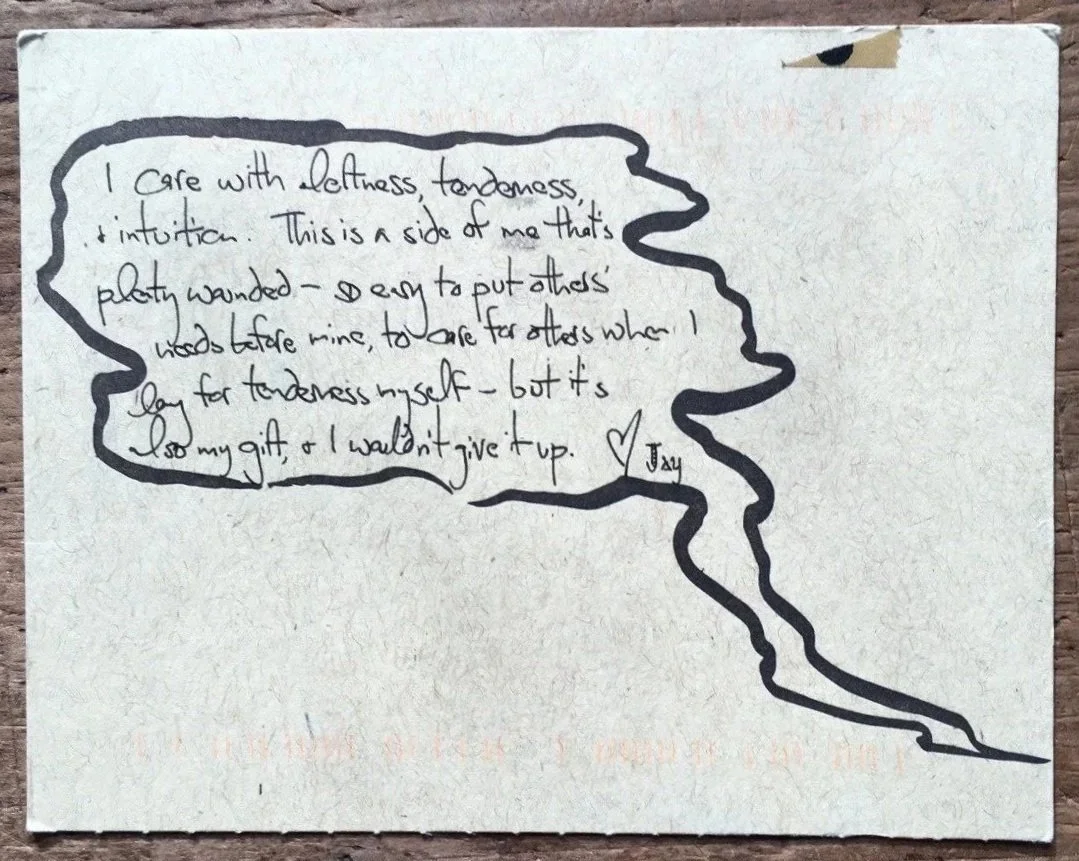 I care with deftness, tenderness,
& intuition. This is a side of me that's
plenty wounded – so easy to put others'
needs before mine, to care for others when I
long for tenderness myself – but it's
also my gift, & I wouldn't give it up. ♡ Jay